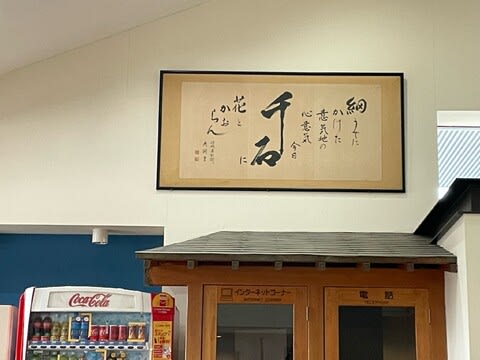 綱うでに
かけた
意気地の
心意気
今日
千石
に
花と
かおらん
Coca-Cola
インターネットコーナー
INTERNET CORNER
電話
TELEPHONE